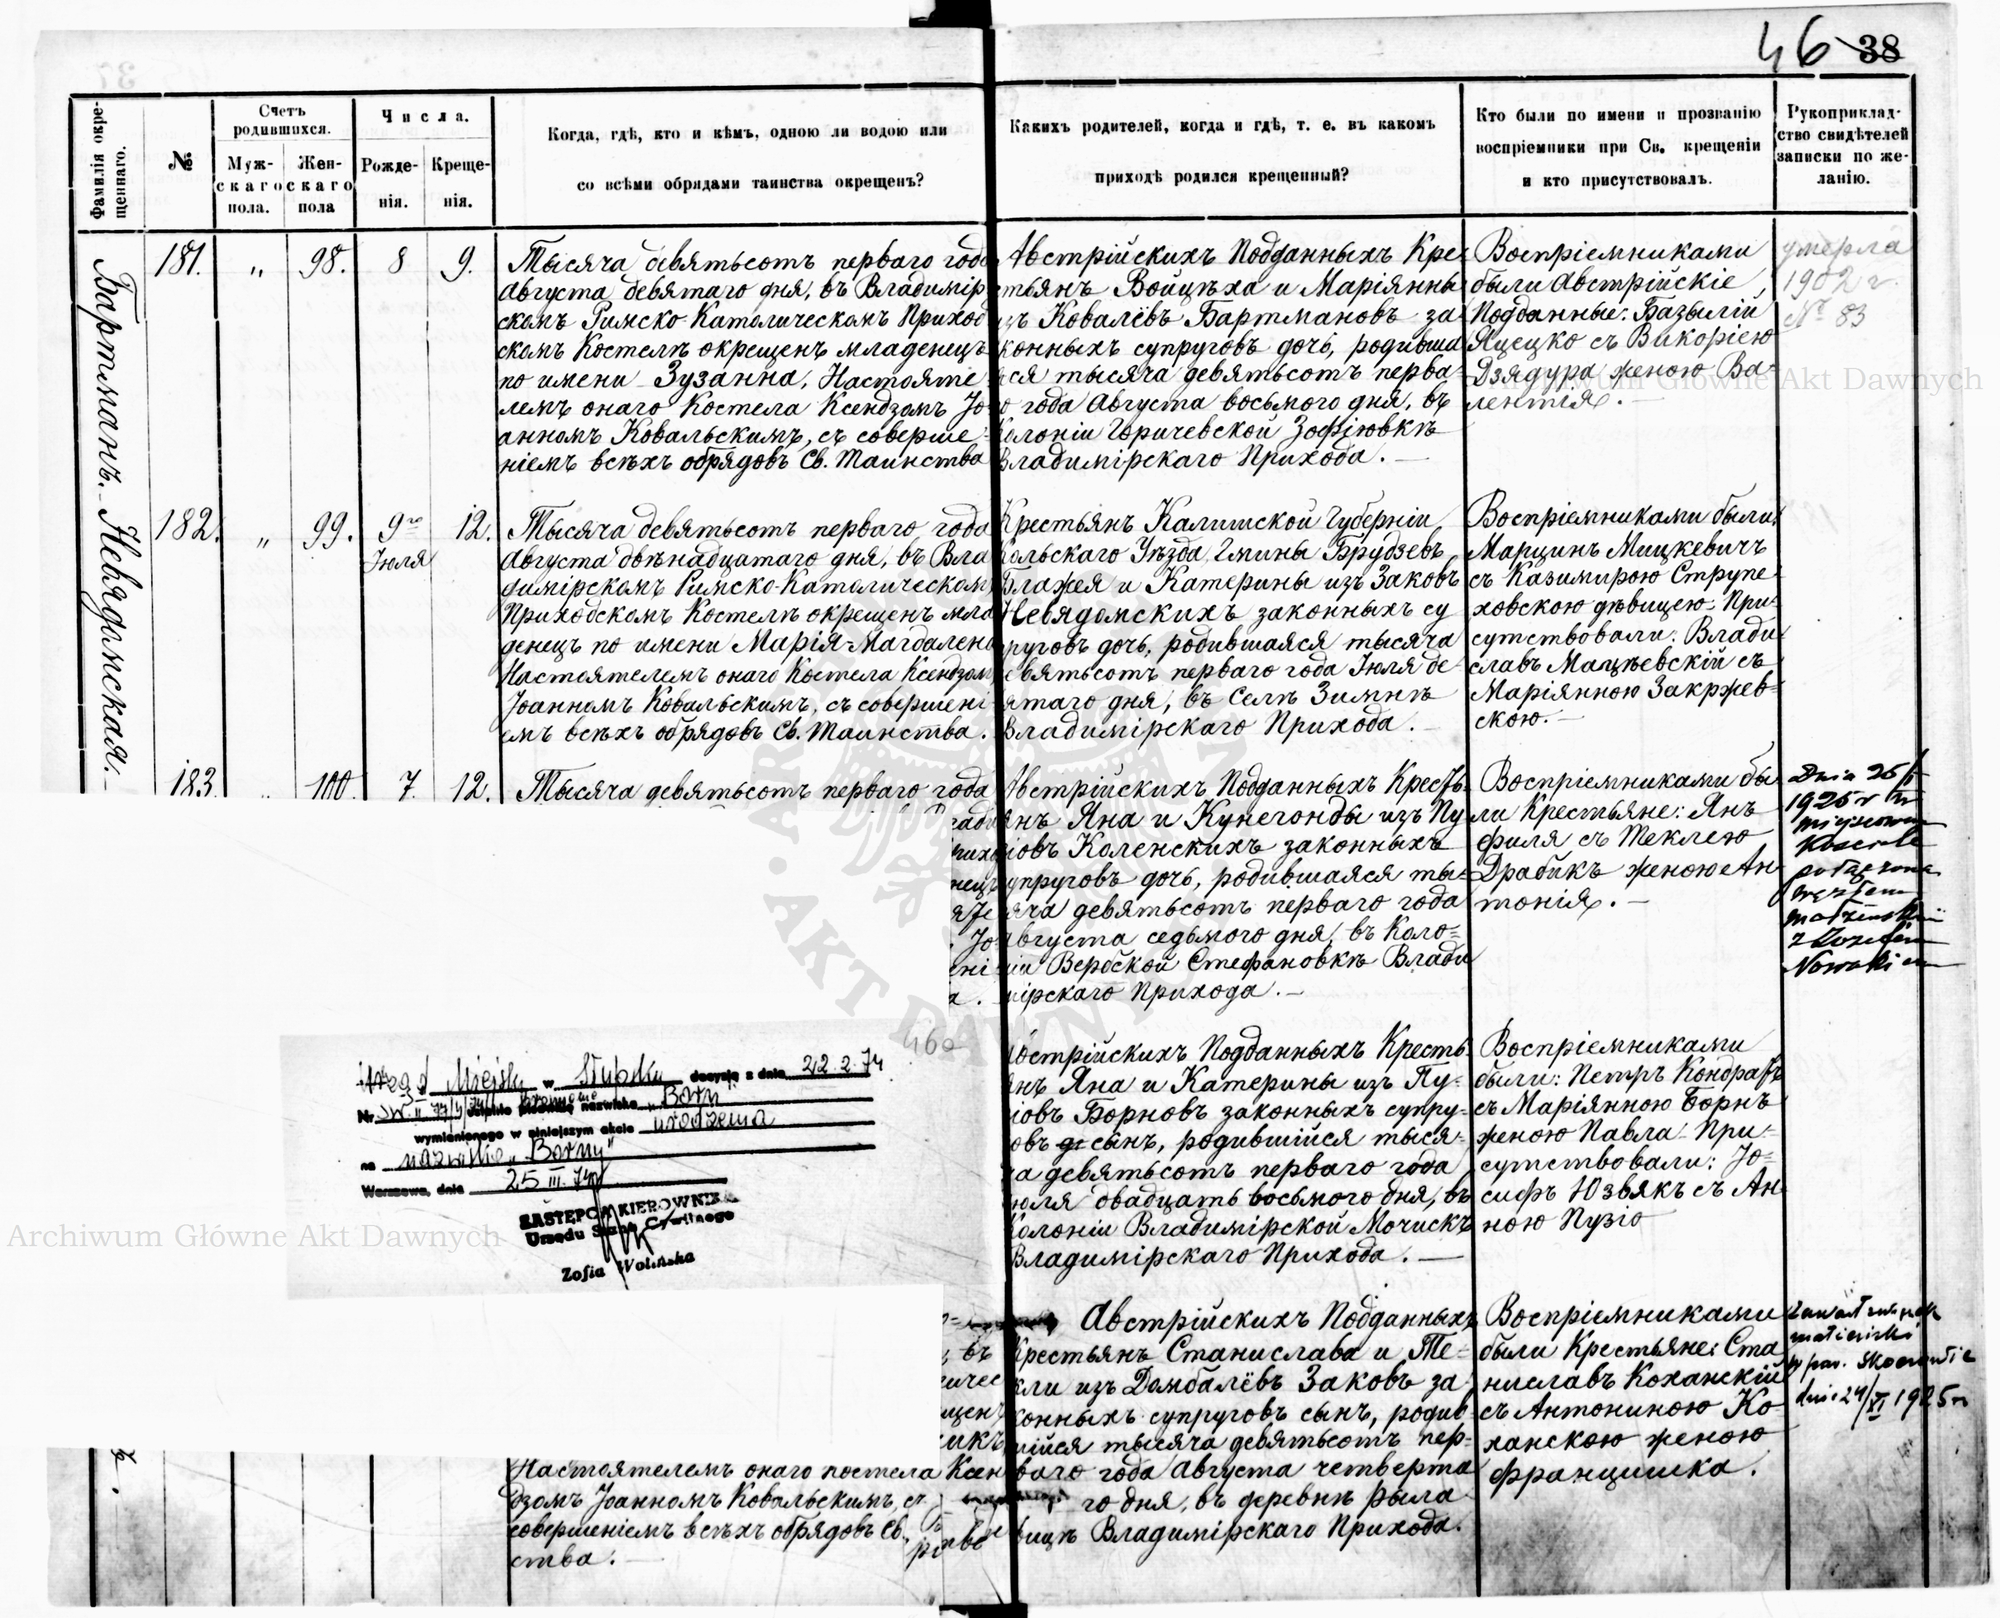 46 38
Фамилія окрещеннаго.
№
Счетъ родившихся.
Муж-скаго пола.
Жен-скаго пола
Числа.
Рожде-нія.
Креще-нія.
Когда, гдѣ, кто и кѣмъ, одною ли водою или
со всѣми обрядами таинства окрещенъ?
Какихъ родителей, когда и гдѣ, т. е. въ какомъ
приходѣ родился крещенный?
Кто были по имени и прозванію
воспріемники при Св. крещеніи
и кто присутствовалъ.
Рукоприклад-
ство свидѣтелей
записки по же-
ланію.
Бартманъ.
181. „ 98. 8 9.
Тысяча девятьсотъ перваго года
Августа девятаго дня, въ Владимір
скомъ Римско-Католическомъ Приход
скомъ Костелѣ окрещенъ младенецъ
по имени Зузанна, Настояте
лемъ онаго Костела Ксендзомъ Іо
анномъ Ковальскимъ, съ соверше-
ніемъ всѣхъ обрядовъ Св. Таинства
Австрійскихъ Подданныхъ Кре-
стьянъ Войцѣха и Маріянны
изъ Ковалёвъ Бартмановъ за-
конныхъ супруговъ дочь, родивша
яся тысяча девятьсотъ перва-
го года Августа восьмого дня, въ
Колоніи Горичевской Зофіювкѣ
Владимірскаго Прихода.
Воспріемниками
были Австрійскіе
Подданные: Базылій
Яцецко съ Викоріею
Дзядура женою Ва-
лентія.
умерла
1902 г.
№ 83
Невядомская.
182. „ 99. 9го Іюля 12.
Тысяча девятьсотъ перваго года
Августа двѣнадцатаго дня, въ Вла
димірскомъ Римско-Католическом
Приходскомъ Костелѣ окрещенъ мла
денецъ по имени Марія-Магдалена
Настоятелемъ онаго Костела Ксендзом
Іоанномъ Ковальскимъ, съ совершені-
емъ всѣхъ обрядовъ Св. Таинства.
Крестьянъ Калишской Губерніи
Кольскаго Уѣзда, Гмины Брудзевъ
Блажея и Катерины изъ Заковъ
Невядомскихъ законныхъ су
пруговъ дочь, родившаяся тысяча
девятьсотъ перваго года Іюля де-
вятаго дня, въ Селѣ Зимнѣ
Владимірскаго Прихода.
Воспріемниками были:
Марцинъ Мицкевичъ
съ Казимирою Струпе-
ховскою дѣвицею. При-
сутствовали: Влади
славъ Мацѣевскій съ
Маріянною Закржев-
скою.
183. „ 100. 7. 12.
Тысяча девятьсотъ перваго года
Австрійскихъ Подданныхъ Кресть-
янъ Яна и Кунегонды изъ Пу
зіовъ Коленскихъ законныхъ
супруговъ дочь, родившаяся ты-
сяча девятьсотъ перваго года
Августа седьмого дня, въ Коло-
ніи Вербской Стефановкѣ Влади
мірскаго Прихода.
Воспріемниками бы-
ли Крестьяне: Янъ
Филя съ Теклею
Драбикъ женою Ан-
тонія.
Dnia 26/I
1925 r w
miejscowym
Kosciele
połączona
węzłem
małżeńskim
z Józefem
Nowakiem
46a
Urząd Miejski w Słupsku decyzją z dnia 22.2.74
Nr
Born
wymienionego w niniejszym akcie urodzenia
na nazwisko „Borny"
Warszawa, dnia 25 III. 74
ZASTĘPCA KIEROWNIKA
Urzędu Stanu Cywilnego
Zofia Wolińska
Австрійскихъ Подданныхъ Кресть-
янъ Яна и Катерины изъ Пу-
зіовъ Борновъ законныхъ супру-
говъ сынъ, родившійся тыся-
ча девятьсотъ перваго года
Іюля двадцать восьмого дня, въ
Колоніи Владимірской Мочискѣ
Владимірскаго Прихода.
Воспріемниками
были: Петръ Кондратъ
съ Маріянною Борнъ
женою Павла. При-
сутствовали: Іо-
сифъ Юзвякъ съ Ан-
ною Пузіо
Настоятелемъ онаго костела Ксен
дзомъ Іоанномъ Ковальскимъ, съ
совершеніемъ всѣхъ обрядовъ Св.
ства.
Австрійскихъ Подданныхъ
Крестьянъ Станислава и Те-
кли изъ Домбалёвъ Заковъ за
конныхъ супруговъ сынъ, родив-
шійся тысяча девятьсотъ пер-
ваго года Августа четверта
го дня, въ деревнѣ Рыла
вицѣ Владимірскаго Прихода.
Воспріемниками
были Крестьяне: Ста
ниславъ Коханскій
съ Антониною Ко-
ханскою женою
Францишка.
Zawarł związek
małżeński
w par. Skoerowie
dnia 24/XI 1925 r
Archiwum Główne Akt Dawnych
Archiwum Główne Akt Dawnych